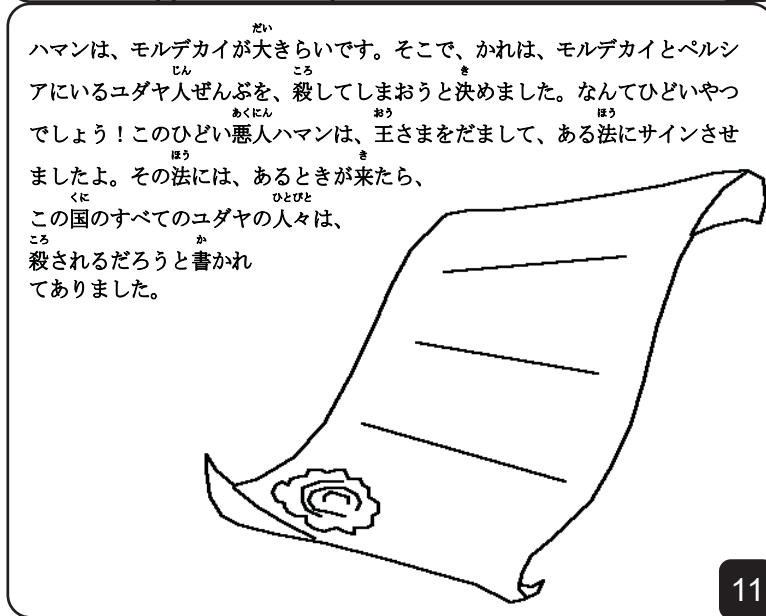 ハマンは、モルデカイが大きらいです。そこで、かれは、モルデカイとペルシ
アにいるユダヤ人ぜんぶを、殺してしまおうと決めました。なんてひどいやつ
でしょう！このひどい悪人ハマンは、王さまをだまして、ある法にサインさせ
ましたよ。その法には、あるときが来たら、
この国のすべてのユダヤの人々は、
殺されるだろうと書かれ
てありました。
11